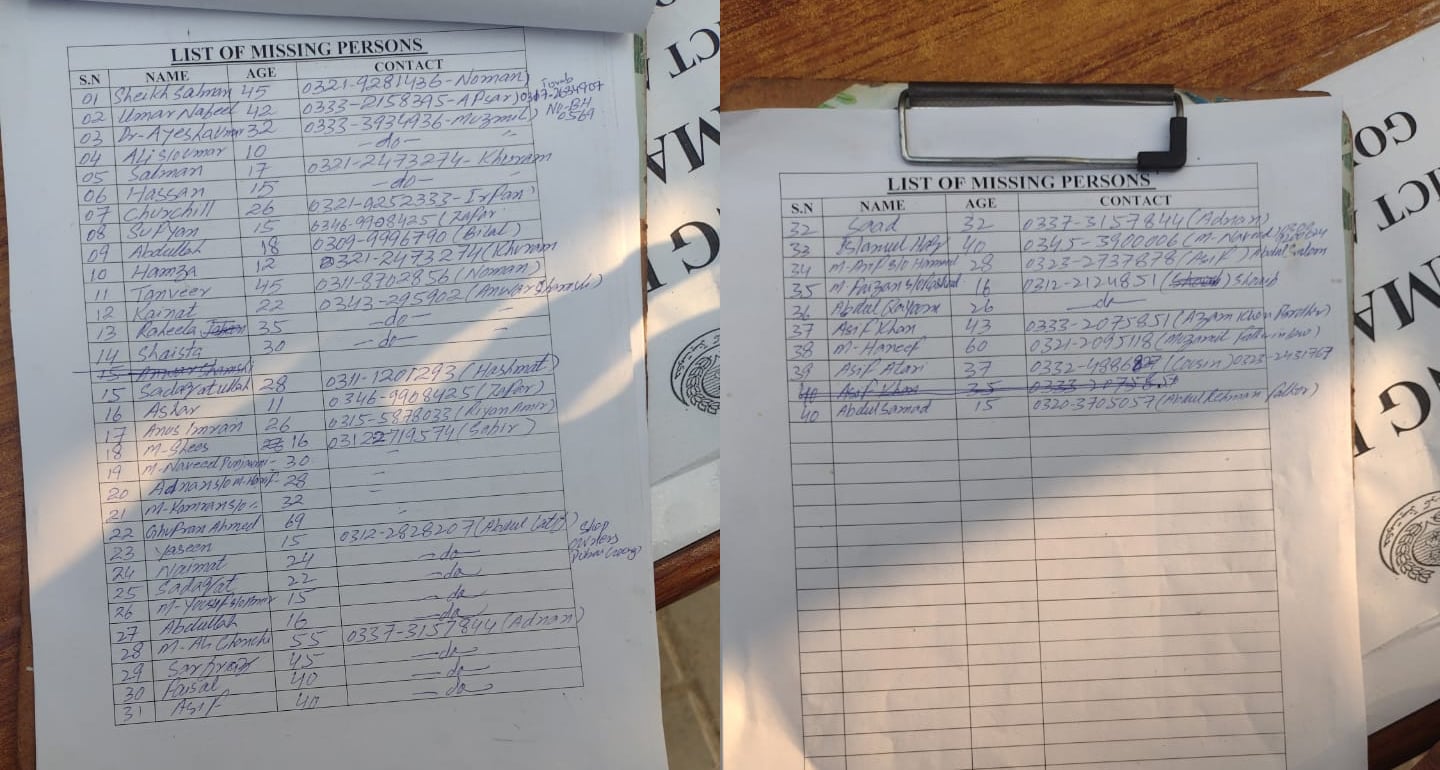 LIST OF MISSING PERSONS
S.N NAME AGE CONTACT
01 Sheikh Salman 45 0321-9281436-Noman)
02 Umar Nabeel 42 0333-2158395-Apsar) 0317-2634907
03 Dr-Ayesha Umar 32 0333-3934936-Muzmil) No-BH 0569
04 Ali s/o Umar 10 -do-
05 Salman 17 0321-2473274-Khurram
06 Hassan 15 -do-
07 Churchill 26 0321-9252333-Irfan)
08 Sufyan 15 0346-9908425 (Zafar
09 Abdullah 18 0309-9996790 (Bilal)
10 Hamza 12 0321-2473274 (Khurram
11 Tanveer 45 0311-8702856 (Noman)
12 Kainat 22 0343-295902 (Anwar Shamshi)
13 Raheela 35 -do-
14 Shaista 30 -do-
15 Anwar Shamshi
15 Sadaqatullah 28 0311-1201293 (Hashmat)
16 Ashar 11 0346-9908425 (Zafar)
17 Anus Imran 26 0315-5878033 (Riyan Amir)
18 M-Shees 16 03122719574 (Sabir)
19 M-Naveed 30
20 Adnan s/o M-Hanif 28
21 M-Kamran s/o 32
22 Ghufran Ahmed 69
23 Yaseen 15 0312-2828207 (Abdul Latif) Shop
24 Naimat 24 -do- owners
25 Sadaqat 22 -do-
26 M-Yousuf s/o 15 -do-
27 Abdullah 16 -do-
28 M-Ali 55 0337-3157844 (Adnan)
29 Sarfraz 45 -do-
30 Faisal 40 -do-
31 Asif 40 -do-
LIST OF MISSING PERSONS
S.N NAME AGE CONTACT
32 Saad 32 0337-3157844 (Adnan)
33 40 0345-3900006 (M-Naved
34 M-Arif s/o Hammad 28 0323-2737878 (Asif) Abdul Salam
35 M-Faizan s/o Rashid 16 0312-2124851 Shoaib
36 Abdul Qayyum 26 -do-
37 Asif Khan 43 0333-2075851 (Azzam Khan Brother)
38 M-Haneef 60 0321-2095118 (Muzamil Father in law)
39 Asif Atari 37 0332-4886827 (Cousin) 0323-2431767
40 Asif Khan 35
40 Abdul Samad 15 0320-3705057 (Abdul Rehman father)